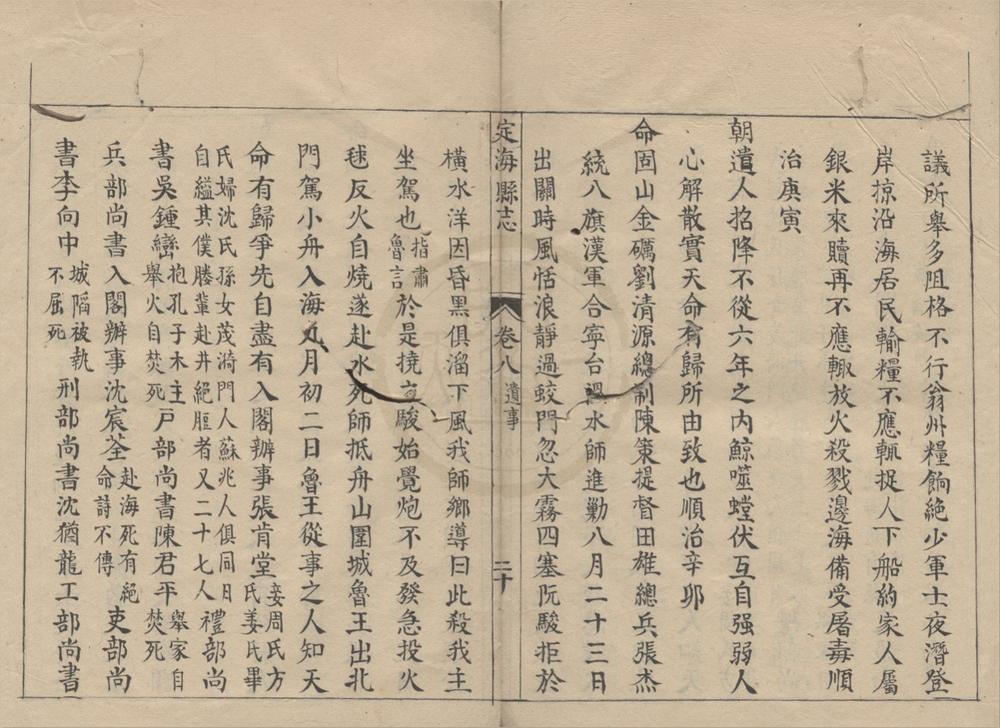 議所舉多阻格不行翁州糧餉絶少軍士夜潛登
岸掠沿海居民輸糧不應輒捉人下船約家人屬
銀米來贖再不應輙放火殺戮邊海備受屠毒順
治庚寅
朝遣人招降不從六年之内鯨噬螳伏互自强弱人
心解散實天命有歸所由致也順治辛卯
命固山金礪劉清源總制陳策提督田雄總兵張杰
統八旗漢軍合寧台溫水師進勦八月二十三日
出關時風恬浪靜過蛟門忽大霧四塞阮駿拒於
定海縣志 卷八 遺事 二十
橫水洋因昏黑俱溜下風我師鄉導曰此殺我主
坐駕也指肅魯言於是撓之駿始覺炮不及發急投火
毬反火自燒遂赴水死師抵舟山圍城魯王出北
門駕小舟入海九月初二日魯王從事之人知天
命有歸爭先自盡有入閣辦事張肯堂妾周氏方氏姜氏畢
氏婦沈氏孫女茂漪門人蘇兆人俱同日自縊其僕媵輩赴井絕脰者又二十七人禮部尚
書吳鍾巒抱孔子木主舉火自焚死戸部尚書陳君平舉家自焚死
兵部尚書入閣辦事沈宸荃赴海死有絕命詩不傳吏部尚
書李向中城陷被執不屈死刑部尚書沈猶龍工部尚書